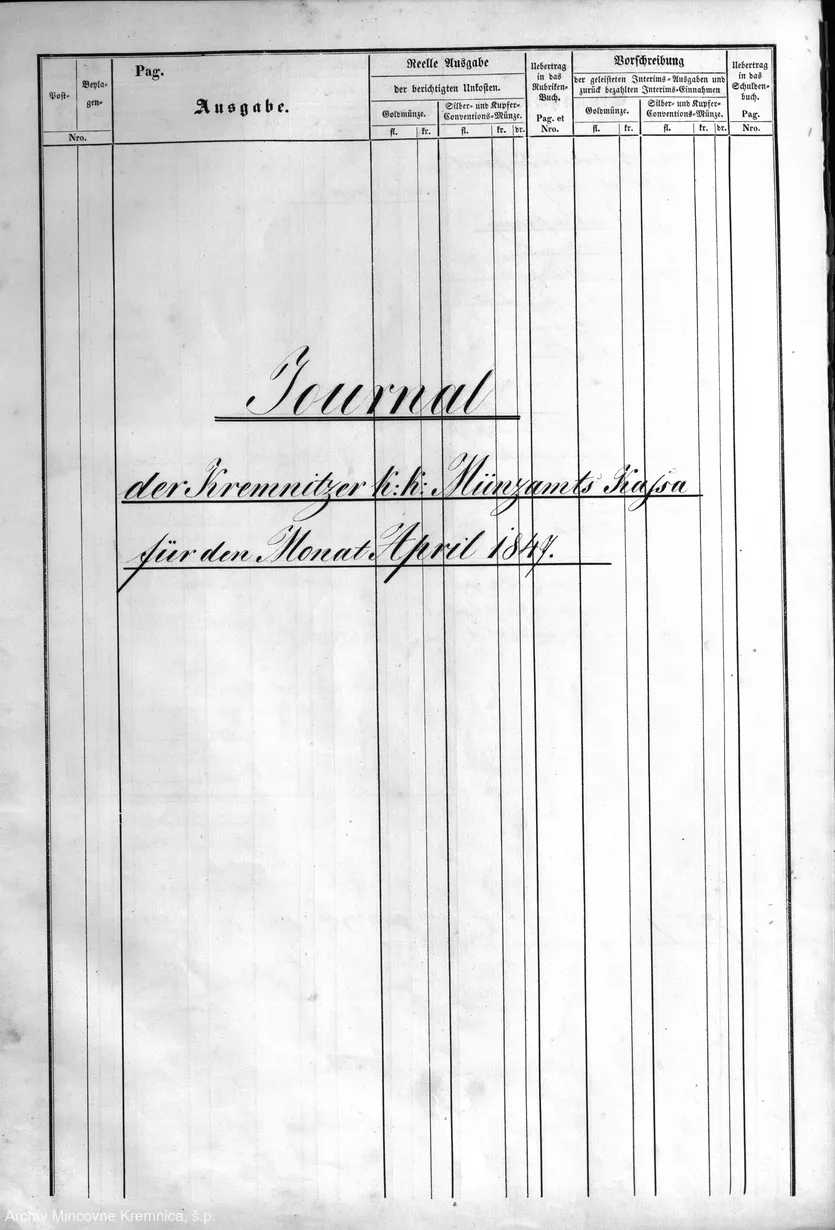 Post-
Beyla-
gen-
Nro.
Pag.
Ausgabe.
Reelle Ausgabe
der berichtigten Unkosten.
Goldmünze.
Silber- und Kupfer-
Conventions-Münze.
fl. kr. fl. kr. dr.
Uebertrag
in das
Rubriken-
Buch.
Pag. et
Nro.
Vorschreibung
der geleisteten Interims-Ausgaben und
zurück bezahlten Interims-Einnahmen
Goldmünze.
Silber- und Kupfer-
Conventions-Münze.
fl. kr. fl. kr. dr.
Uebertrag
in das
Schulden-
buch.
Pag.
Nro.
Journal
der Kremnitzer k: k: Münzamts Kaſsa
für den Monat April 1847.
Archív Mincovne Kremnica, š.p.